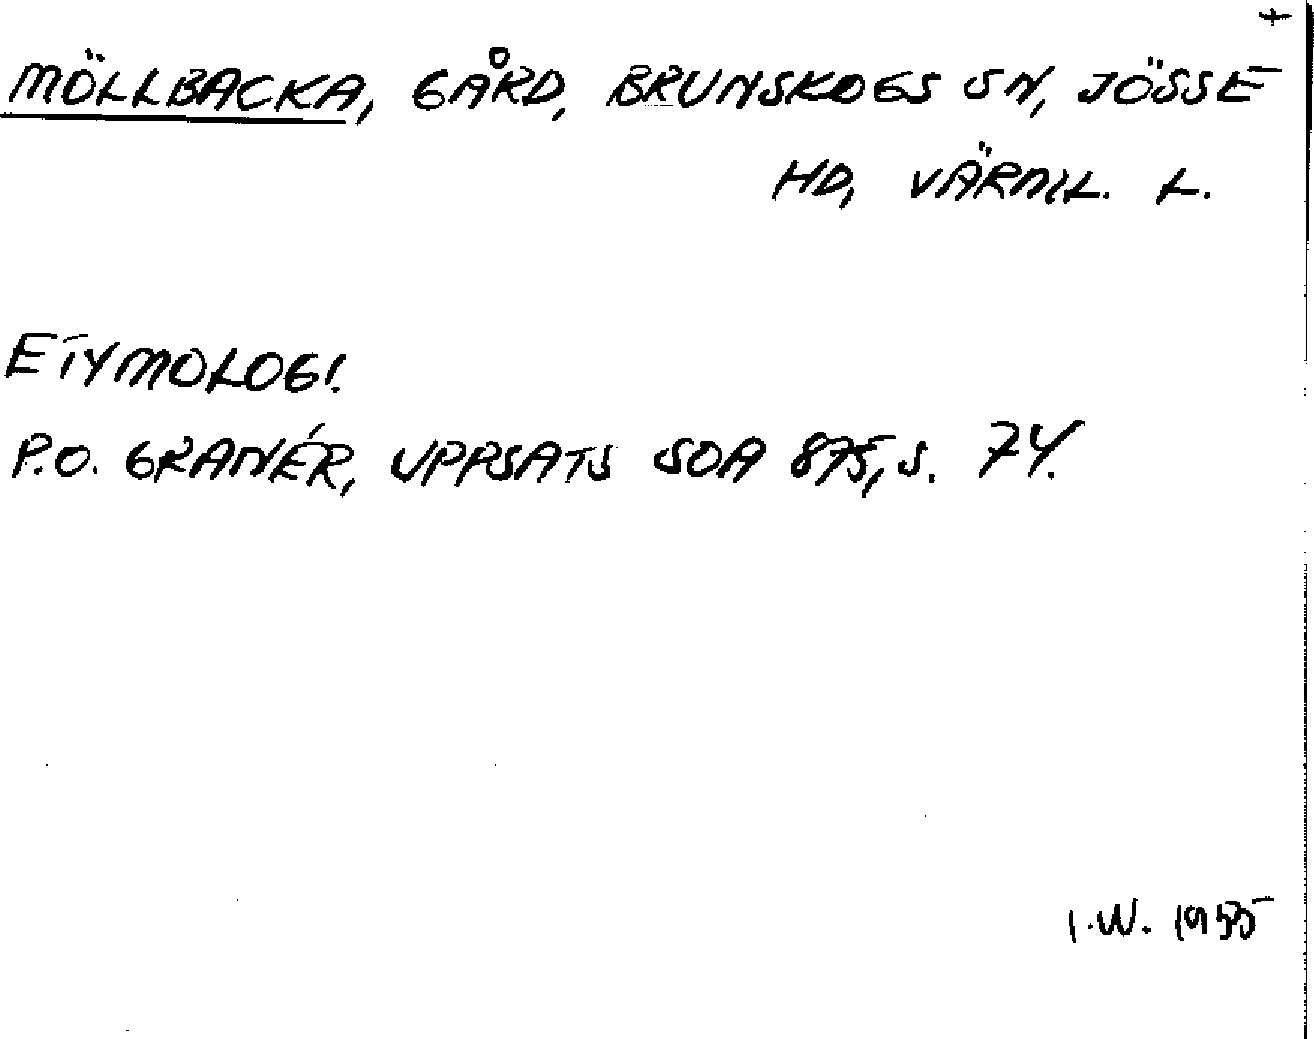 MÖLLBACKA, GÅRD, BRUNSKOGS SN, JÖSSE
HD, VÄRML. L.
ETYMOLOGI.
P.O. GRANÉR, UPPSATS SOA 875, S. 74.
I.W. 1955